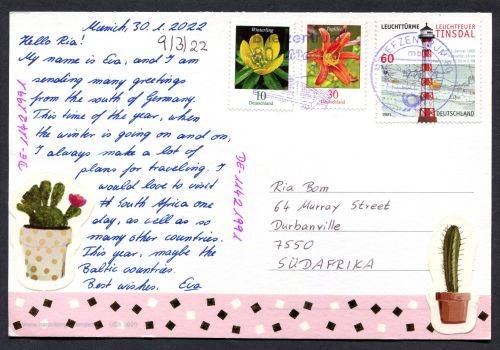 Munich, 30.1.2022
Hello Ria!
9/3/22
My name is Eva, and I am
sending many greetings
from the south of Germany.
This time of the year, when
the winter is going on and on,
I always make a lot of
plans for traveling. I
would love to visit
South Africa one
day, as well as so
many other countries.
This year, maybe the
Baltic countries.
Best wishes. Eva
DE-11421991
DE-11421991
Winterling
10
Deutschland
30
Deutschland
LEUCHTTÜRME
60
LEUCHTFEUER
TINSDAL
DEUTSCHLAND
BRIEFZENTRUM
Ria Bom
64 Murray Street
Durbanville
7550
SÜDAFRIKA